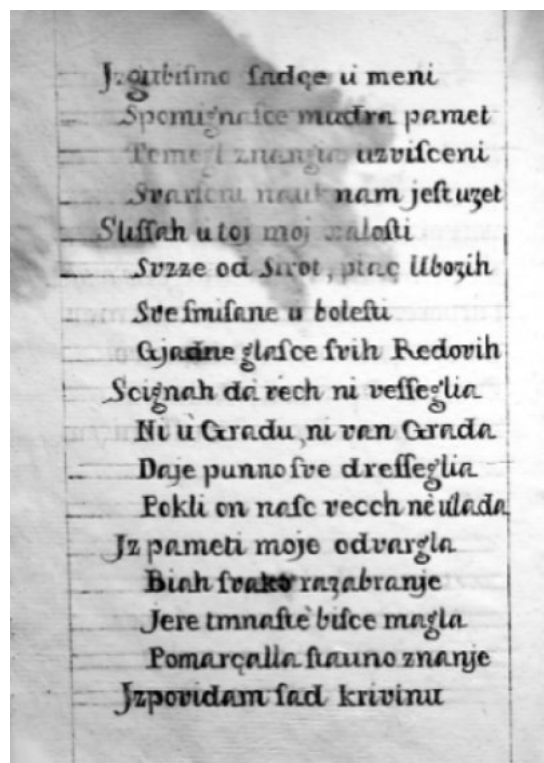 Jzgubismo sadçe u meni
Spomignasce mudra pamet
Temegl znangia uzvisceni
Svarscni nauk nam jest uzet
Slissah u toj moj xalosti
Suzze od Sirot, plac Ubozih
Sve smisane u bolesti
Gjadne glasce svih Redovih
Scignah da rech ni vesseglia
Ni ù Gradu, ni van Grada
Daje punno sve dresseglia
Pokli on nasc vecch nè ulada
Jz pameti moje odvargla
Biah svako razabranje
Jere tmnastè bisce magla
Pomarçalla stauno znanje
Jzpovidam sad krivinu